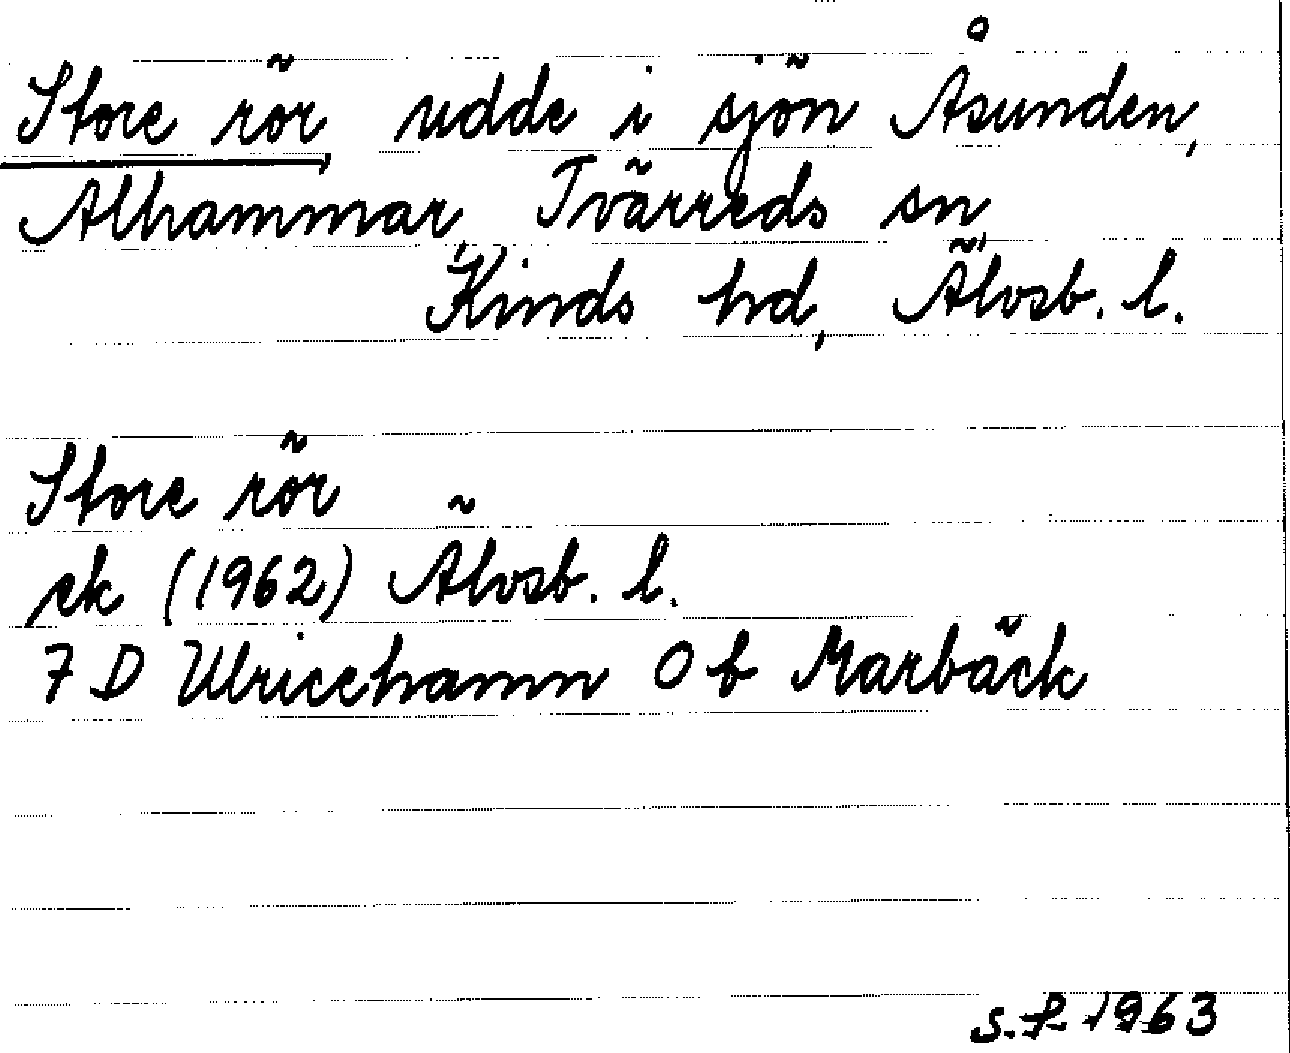 Store rör, udde i sjön Åsunden,
Alhammar, Tvärreds sn,
Kinds hd, Älvsb. l.
Store rör
ek (1962) Älvsb. l.
7 D Ulricehamn 0 b Marbäck
S.P. 1963